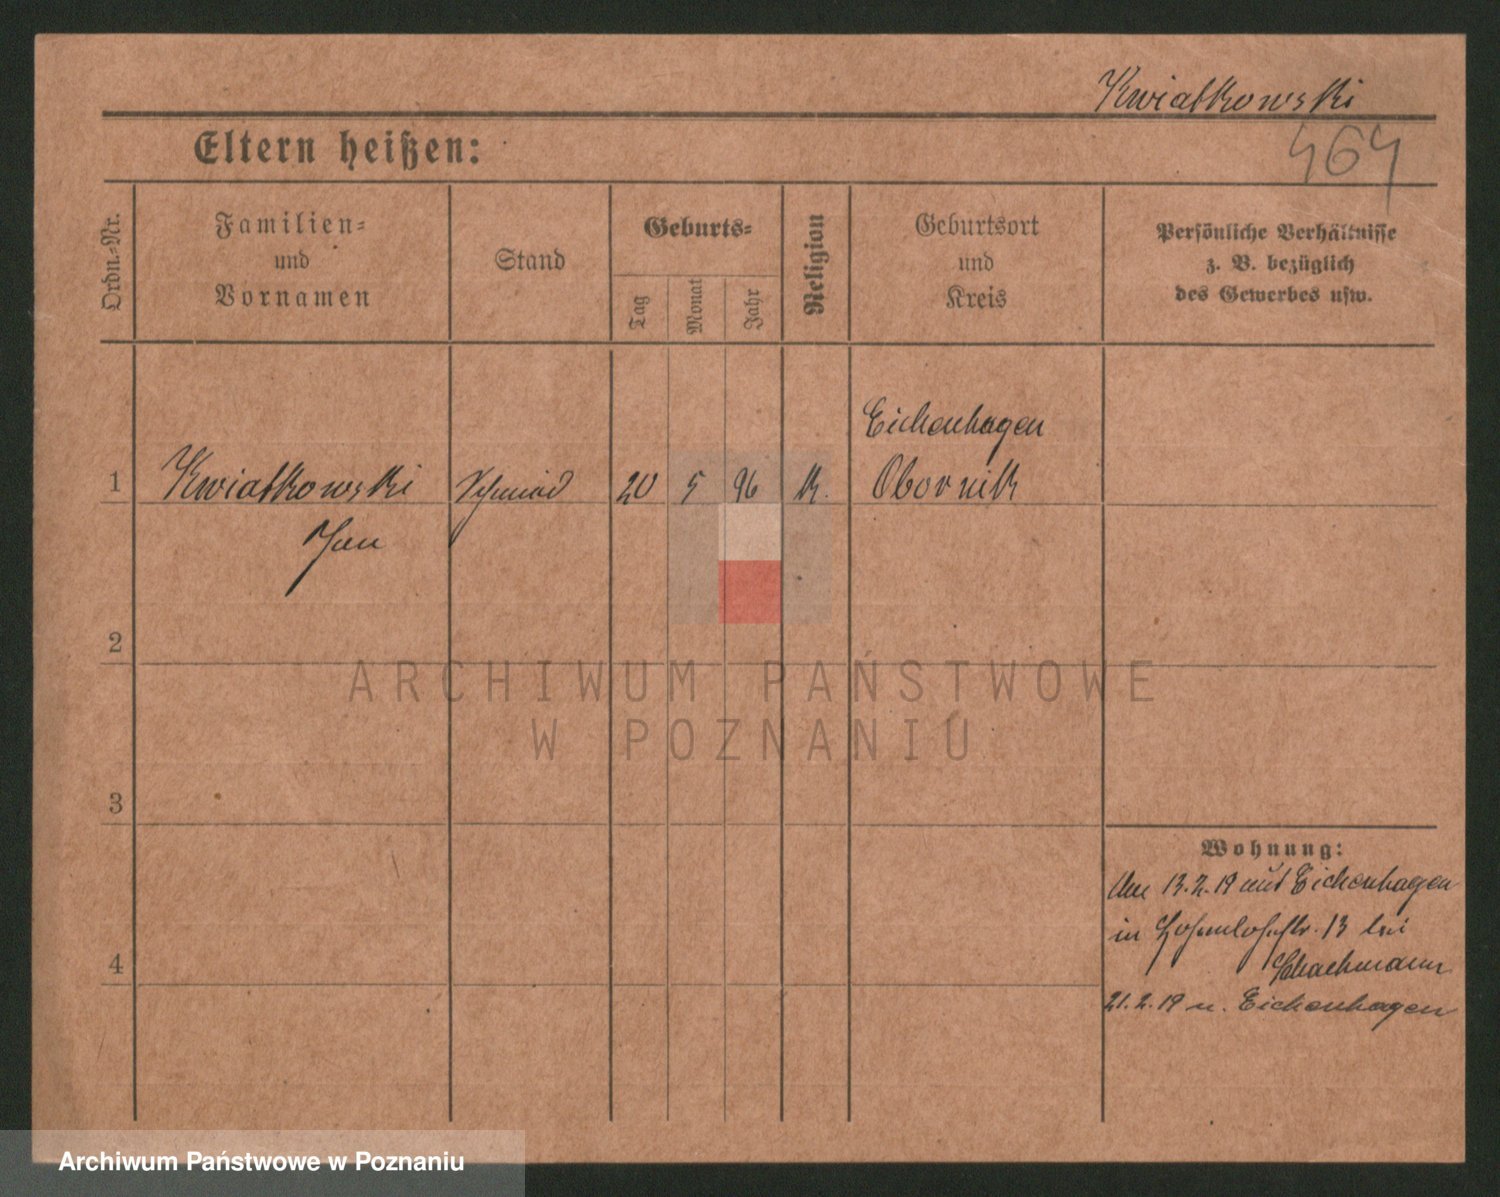 Kwiatkowski
464
Eltern heißen:
Ordn.-Nr.
Familien-
und
Vornamen
Stand
Geburts-
Tag
Monat
Jahr
Religion
Geburtsort
und
Kreis
Persönliche Verhältnisse
z. B. bezüglich
des Gewerbes usw.
Eichenhagen
1 Kwiatkowski Schmied 20 5 96 K. Obornik
Jan
2
3
4
Wohnung:
Am 13.2.19 aus Eichenhagen
in Hohenlohestr. 13 bei
Schachmann
21.2.19 n. Eichenhagen
ARCHIWUM PAŃSTWOWE
W POZNANIU
Archiwum Państwowe w Poznaniu